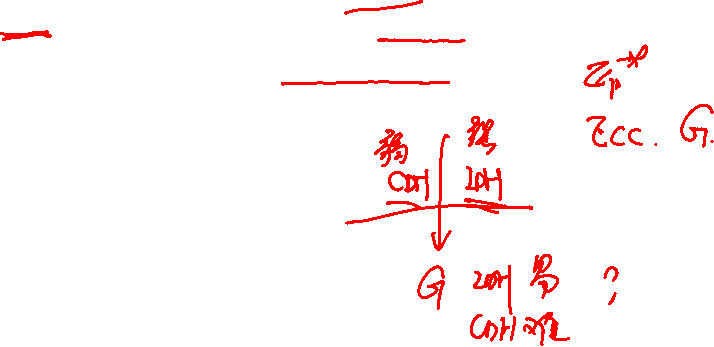 Z_p^*
ECC. G.
弱 强
CDH DDH
G DDH 易 ?
CDH 难